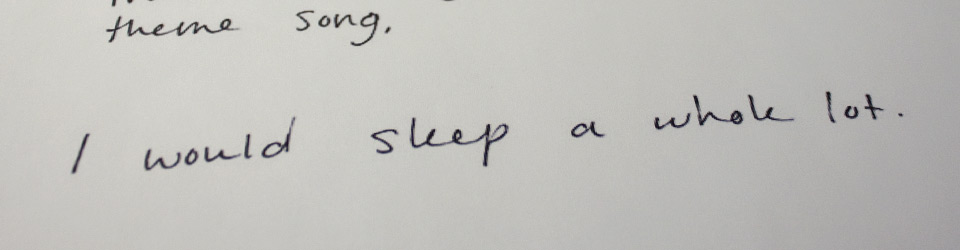 theme song.
I would sleep a whole lot.